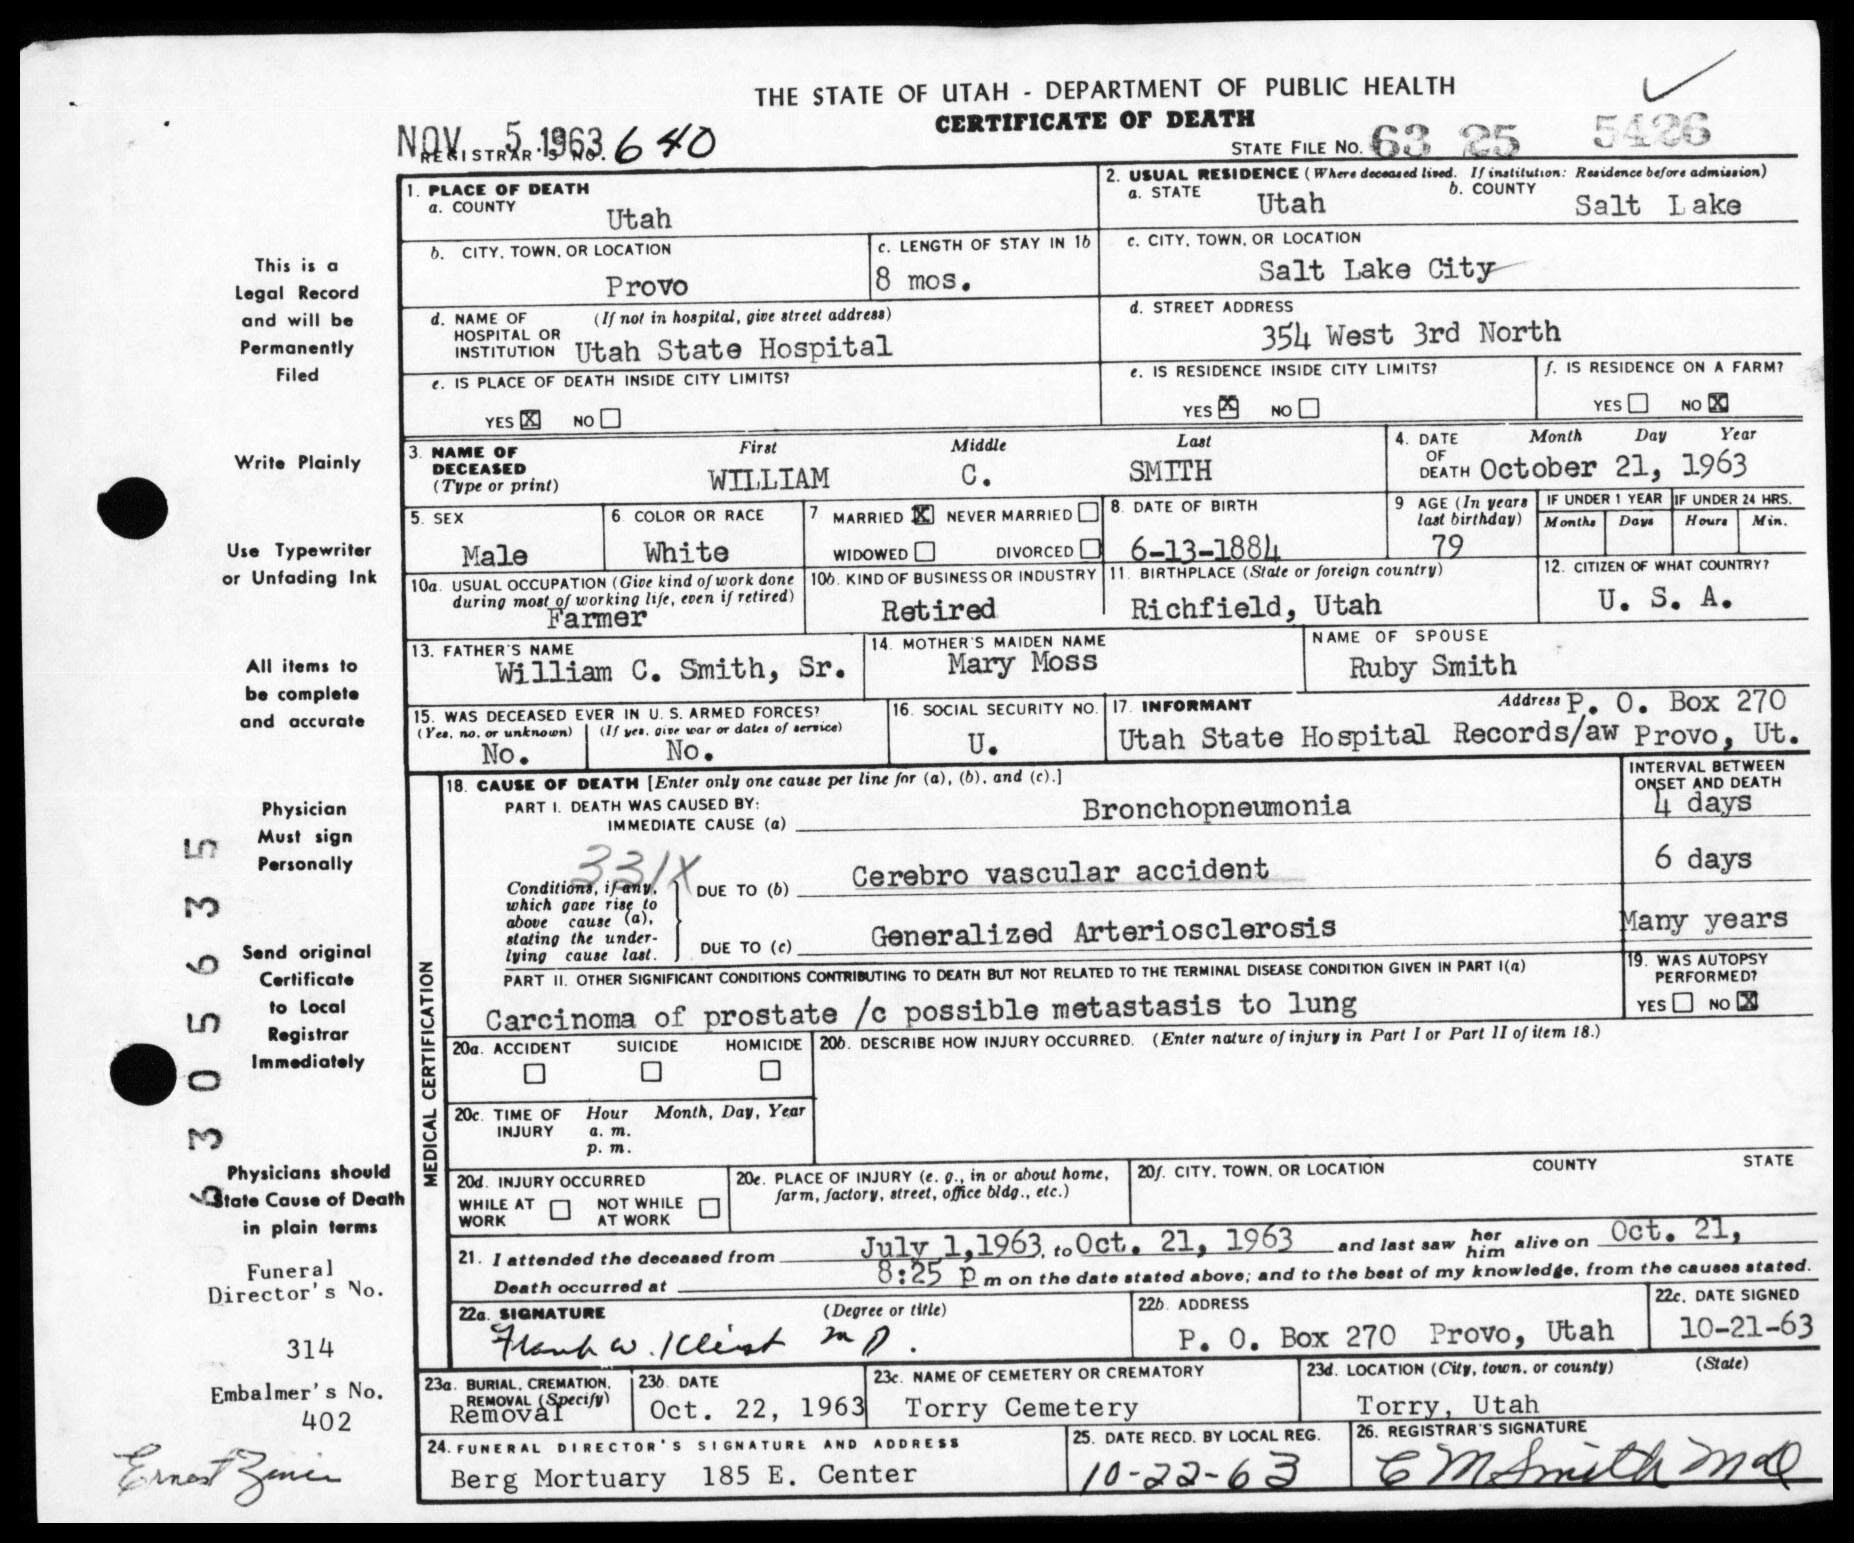 THE STATE OF UTAH - DEPARTMENT OF PUBLIC HEALTH
CERTIFICATE OF DEATH
NOV 5 1963
REGISTRAR'S NO. 640
STATE FILE NO. 63 25 5426
1. PLACE OF DEATH
a. COUNTY
Utah
2. USUAL RESIDENCE (Where deceased lived. If institution: Residence before admission)
a. STATE Utah b. COUNTY Salt Lake
b. CITY, TOWN, OR LOCATION
Provo
c. LENGTH OF STAY IN 1b
8 mos.
c. CITY, TOWN, OR LOCATION
Salt Lake City
d. NAME OF HOSPITAL OR INSTITUTION (If not in hospital, give street address)
Utah State Hospital
d. STREET ADDRESS
354 West 3rd North
e. IS PLACE OF DEATH INSIDE CITY LIMITS?
YES X NO
e. IS RESIDENCE INSIDE CITY LIMITS?
YES X NO
f. IS RESIDENCE ON A FARM?
YES NO X
3. NAME OF DECEASED (Type or print)
First Middle Last
WILLIAM C. SMITH
4. DATE OF DEATH Month Day Year
October 21, 1963
5. SEX
Male
6. COLOR OR RACE
White
7. MARRIED X NEVER MARRIED
WIDOWED DIVORCED
8. DATE OF BIRTH
6-13-1884
9 AGE (In years last birthday)
79
IF UNDER 1 YEAR
Months Days
IF UNDER 24 HRS.
Hours Min.
10a. USUAL OCCUPATION (Give kind of work done during most of working life, even if retired)
Farmer
10b. KIND OF BUSINESS OR INDUSTRY
Retired
11. BIRTHPLACE (State or foreign country)
Richfield, Utah
12. CITIZEN OF WHAT COUNTRY?
U. S. A.
13. FATHER'S NAME
William C. Smith, Sr.
14. MOTHER'S MAIDEN NAME
Mary Moss
NAME OF SPOUSE
Ruby Smith
15. WAS DECEASED EVER IN U. S. ARMED FORCES?
(Yes, no, or unknown) (If yes, give war or dates of service)
No. No.
16. SOCIAL SECURITY NO.
U.
17. INFORMANT Address P. O. Box 270
Utah State Hospital Records/aw Provo, Ut.
MEDICAL CERTIFICATION
18. CAUSE OF DEATH [Enter only one cause per line for (a), (b), and (c).]
INTERVAL BETWEEN ONSET AND DEATH
PART I. DEATH WAS CAUSED BY:
IMMEDIATE CAUSE (a) Bronchopneumonia 4 days
331X
Conditions, if any, which gave rise to above cause (a), stating the underlying cause last.
DUE TO (b) Cerebro vascular accident 6 days
DUE TO (c) Generalized Arteriosclerosis Many years
PART II. OTHER SIGNIFICANT CONDITIONS CONTRIBUTING TO DEATH BUT NOT RELATED TO THE TERMINAL DISEASE CONDITION GIVEN IN PART I(a)
Carcinoma of prostate /c possible metastasis to lung
19. WAS AUTOPSY PERFORMED?
YES NO X
20a. ACCIDENT SUICIDE HOMICIDE
20b. DESCRIBE HOW INJURY OCCURRED. (Enter nature of injury in Part I or Part II of item 18.)
20c. TIME OF INJURY Hour Month, Day, Year
a. m.
p. m.
20d. INJURY OCCURRED
WHILE AT WORK NOT WHILE AT WORK
20e. PLACE OF INJURY (e. g., in or about home, farm, factory, street, office bldg., etc.)
20f. CITY, TOWN, OR LOCATION COUNTY STATE
21. I attended the deceased from July 1,1963, to Oct. 21, 1963 and last saw her him alive on Oct. 21,
Death occurred at 8:25 p m on the date stated above; and to the best of my knowledge, from the causes stated.
22a. SIGNATURE (Degree or title)
Frank W. Kleist M D.
22b. ADDRESS
P. O. Box 270 Provo, Utah
22c. DATE SIGNED
10-21-63
23a. BURIAL, CREMATION, REMOVAL (Specify)
Removal
23b. DATE
Oct. 22, 1963
23c. NAME OF CEMETERY OR CREMATORY
Torry Cemetery
23d. LOCATION (City, town, or county) (State)
Torry, Utah
24. FUNERAL DIRECTOR'S SIGNATURE AND ADDRESS
Berg Mortuary 185 E. Center
25. DATE RECD. BY LOCAL REG.
10-22-63
26. REGISTRAR'S SIGNATURE
C M Smith MD
This is a
Legal Record
and will be
Permanently
Filed
Write Plainly
Use Typewriter
or Unfading Ink
All items to
be complete
and accurate
Physician
Must sign
Personally
Send original
Certificate
to Local
Registrar
Immediately
Physicians should
State Cause of Death
in plain terms
6 3 0 5 6 3 5
Funeral
Director's No.
314
Embalmer's No.
402
Ernest